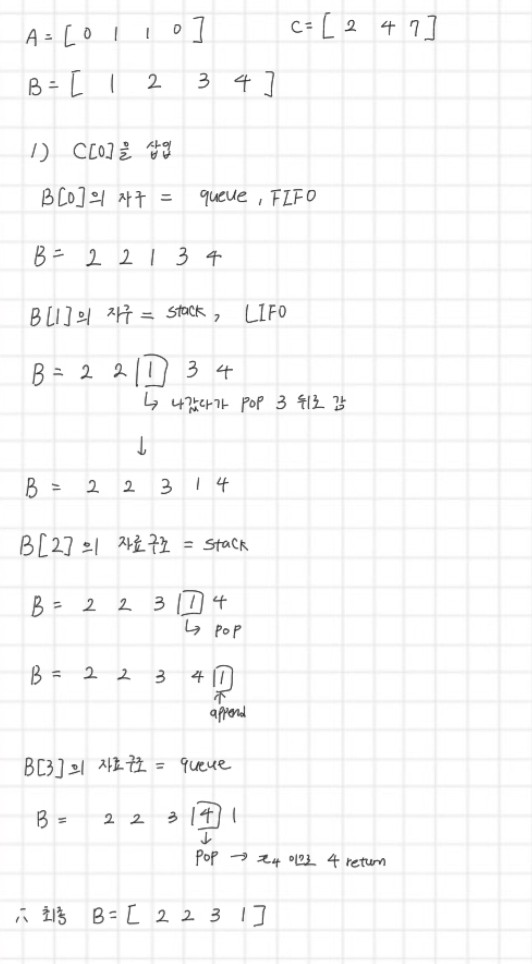 A = [ 0 1 1 0 ] C = [ 2 4 7 ]
B = [ 1 2 3 4 ]
1) C[0]을 삽입
B[0]의 자구 = queue, FIFO
B = 2 2 1 3 4
B[1]의 자구 = stack, LIFO
B = 2 2 1 3 4
↳ 나갔다가 pop 3 뒤로 감
↓
B = 2 2 3 1 4
B[2]의 자료구조 = stack
B = 2 2 3 1 4
↳ pop
B = 2 2 3 4 1
↑
append
B[3]의 자료구조 = queue
B = 2 2 3 4 1
↓
pop → 4 return
∴ 최종 B = [ 2 2 3 1 ]